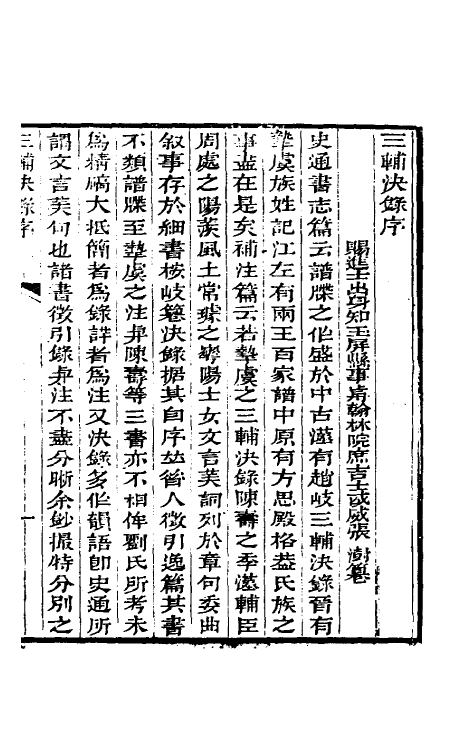 三輔決錄序
賜進士出身知玉屏縣事前翰林院庶吉士武威張澍纂
史通書志篇云譜牒之作盛於中古漢有趙岐三輔決錄晉有
摯虞族姓記江左有兩王百家譜中原有方思殿格葢氏族之
事盡在是矣補注篇云若摯虞之三輔決錄陳壽之季漢輔臣
周處之陽羨風土常璩之華陽士女文言美詞列於章句委曲
叙事存於細書按岐纂決錄据其自序並晉人徵引逸篇其書
不類譜牒至摯虞之注與陳壽等三書亦不相侔劉氏所考未
爲精碻大抵簡者爲錄詳者爲注又決錄多作韻語卽史通所
謂文言美句也諸書徵引錄與注不盡分晰余鈔撮特分別之
三輔決錄序